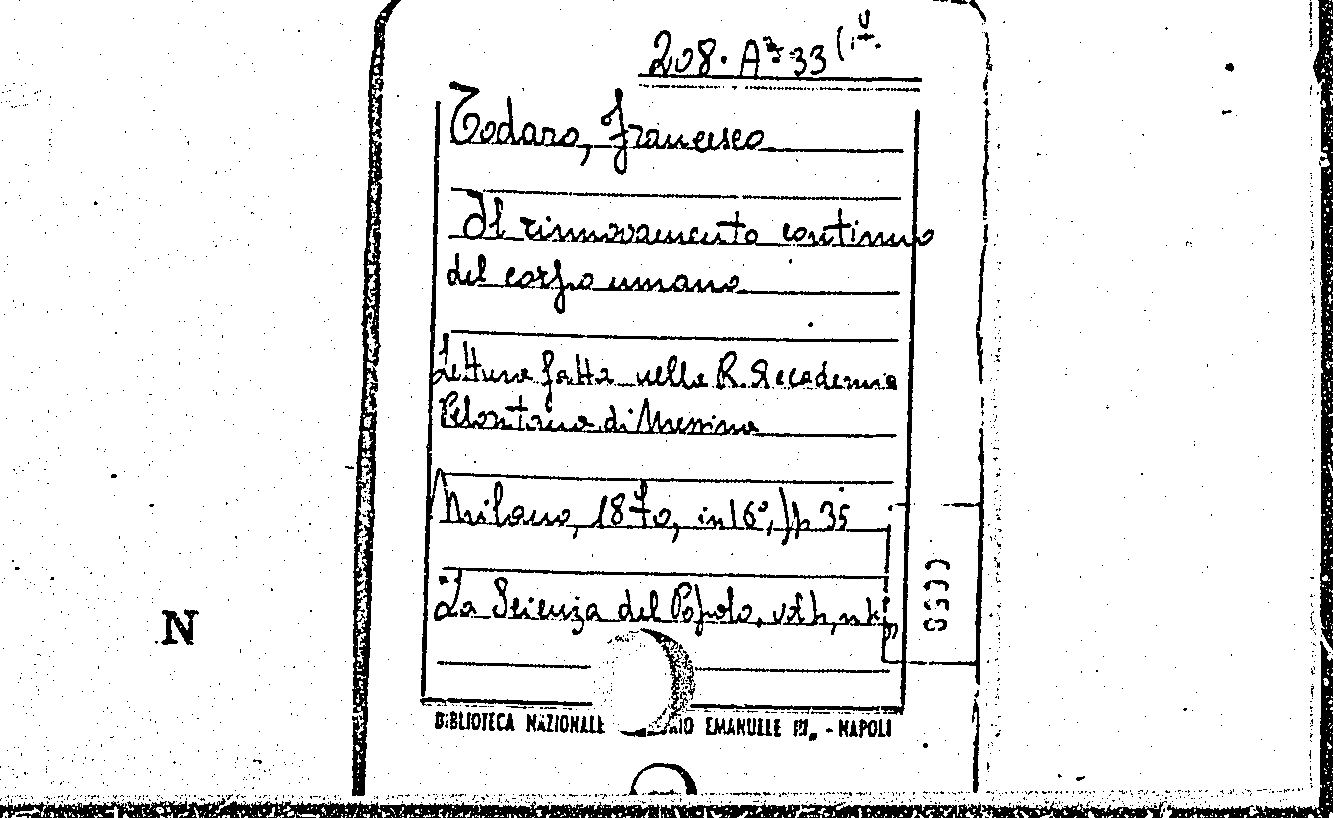 208. A 33 (
Todaro, Francesco
Il rinnovamento continuo
del corpo umano
Lettura fatta nella R. Accademia
Peloritana di Messina
Milano, 1870, in 16°, pp 35
La Scienza del Popolo, vol.
N
BIBLIOTECA NAZIONALE EMANUELE III. - NAPOLI